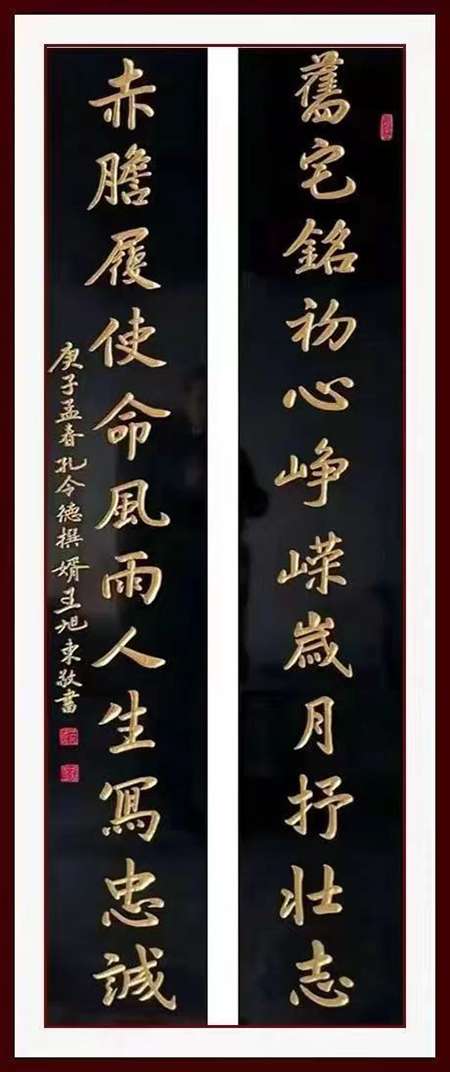 舊宅銘初心崢嶸歲月抒壯志
赤膽履使命風雨人生寫忠誠
庚子孟春孔令德撰婿王旭東敬書